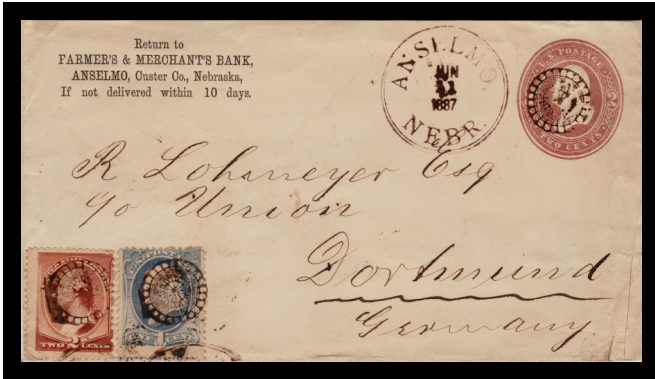 Return to
FARMER'S & MERCHANT'S BANK,
ANSELMO, Custer Co., Nebraska,
If not delivered within 10 days.
ANSELMO.
JUN
1887
NEBR.
U.S. POSTAGE
TWO CENTS
R Lohmeyer Esq
c/o Union
Dortmund
Germany.
TWO 2 CENTS